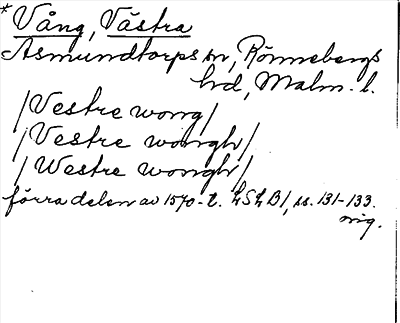 * Vång, Västra
Asmundtorps sn, Rönnebergs
hd, Malm. l.
/Vestre wong/
/Vestre wongh/
/Westre wongh/
förra delen av 1570-t. LSLB1, ss. 131-133.
orig.